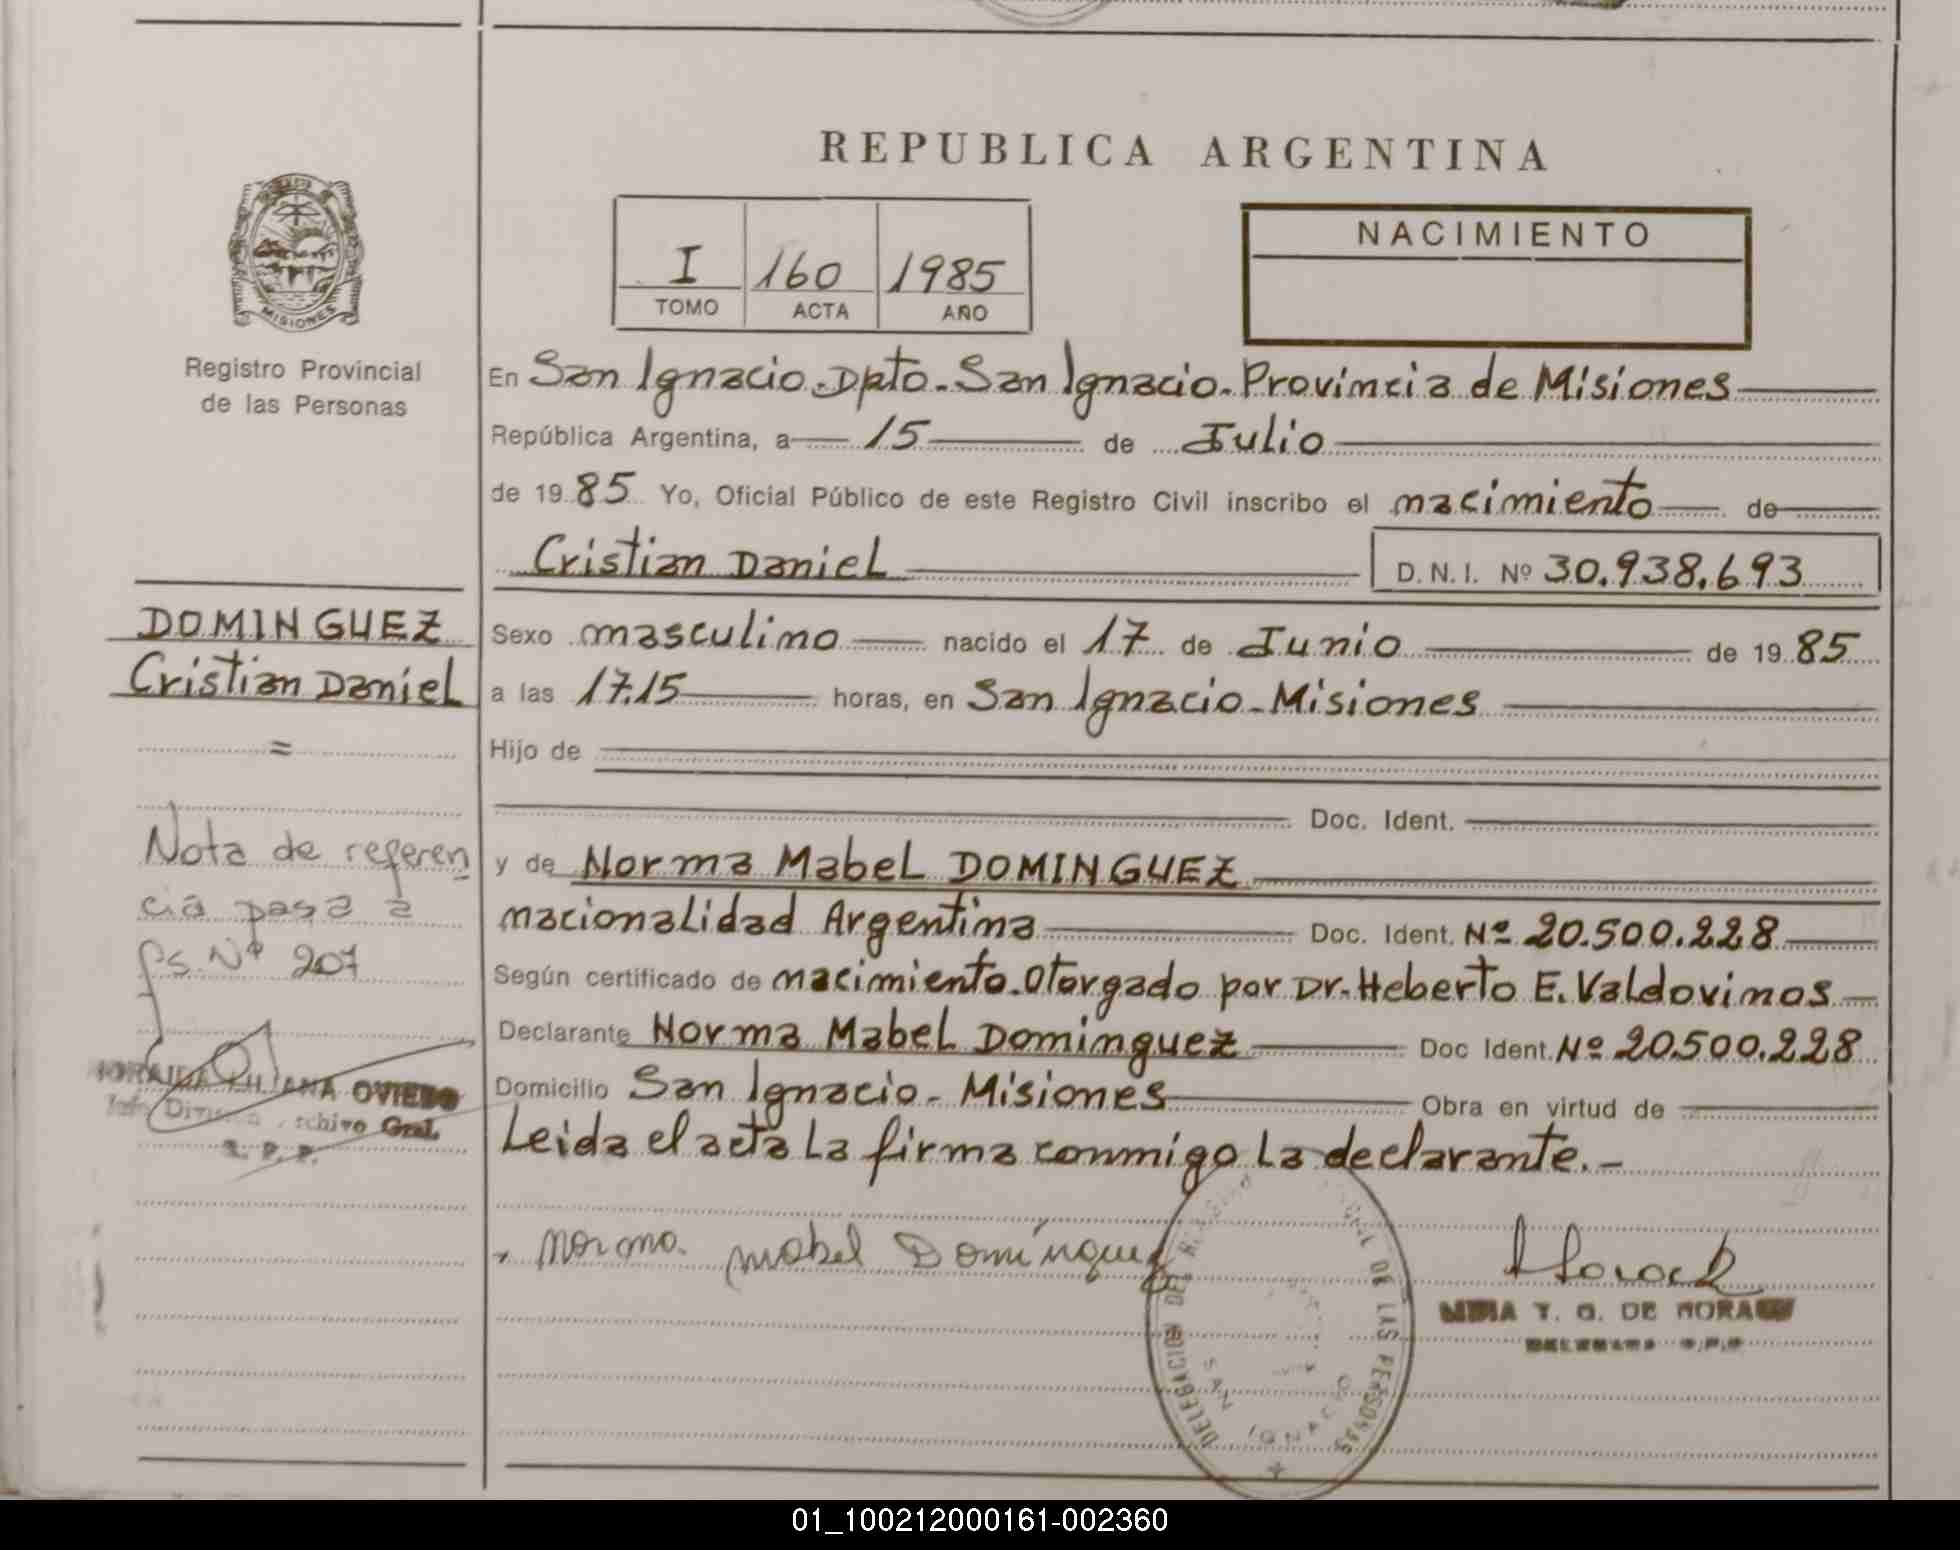 REPUBLICA ARGENTINA
I 160 1985
TOMO ACTA AÑO
NACIMIENTO
MISIONES
Registro Provincial
de las Personas
En San Ignacio. Dpto. San Ignacio. Provincia de Misiones
República Argentina, a 15 de Julio
de 1985 Yo, Oficial Público de este Registro Civil inscribo el nacimiento de
Cristian Daniel D.N.I. Nº 30.938.693
DOMINGUEZ
Cristian Daniel
=
Sexo masculino nacido el 17 de Junio de 1985
a las 17.15 horas, en San Ignacio - Misiones
Hijo de
Doc. Ident.
y de Norma Mabel DOMINGUEZ
nacionalidad Argentina Doc. Ident. Nº 20.500.228
Según certificado de nacimiento. Otorgado por Dr. Heberto E. Valdovinos
Declarante Norma Mabel Dominguez Doc Ident. Nº 20.500.228
Domicilio San Ignacio - Misiones Obra en virtud de
Leida el acta la firma conmigo la declarante.-
Nota de referen
cia pasa a
fs. Nº 207
LILIANA OVIEDO
Archivo Gral.
R. P. P.
Norma Mabel Dominguez
DELEGACION DEL REGISTRO PROVINCIAL DE LAS PERSONAS
SAN IGNACIO
T. G. DE HORACK
01_100212000161-002360